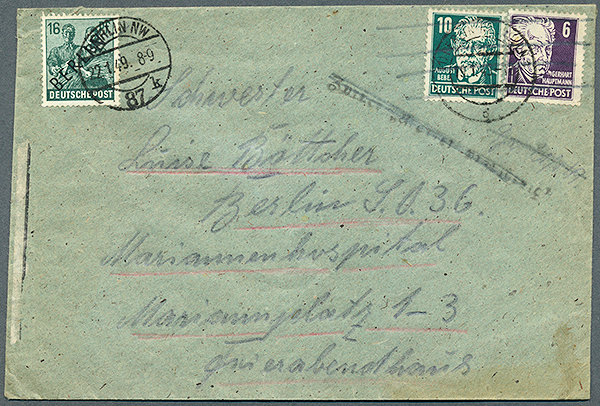 16
BERLIN
DEUTSCHE POST
BERLIN NW
27.1.49. 8-9
87 k
10
AUGUST
BEBEL
DEUTSCHE POST
6
GERHART
HAUPTMANN
DEUTSCHE POST
Schwester
Luise Böttcher
Berlin S.O. 36.
Mariannenhospital
Mariannplatz 1-3
Feierabendhaus